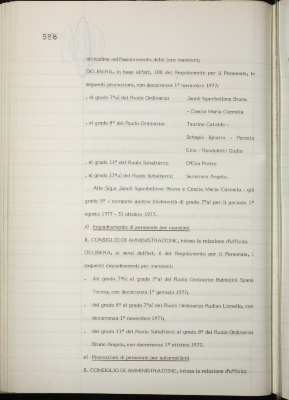 586
attitudine nell'assolvimento delle loro mansioni;
DELIBERA, in base all'art. 186 del Regolamento per il Personale, le
seguenti promozioni, con decorrenza 1° novembre 1977:
. al grado 7°a) del Ruolo Ordinario: Jannò Sgambellone Bruna
- Coscia Maria Carmela
. al grado 8° del Ruolo Ordinario: Taurino Cataldo -
Schepis Ignazia - Peretto
Cira - Giulio
. al grado 11° del Ruolo Subalterni: Pietro
. al grado 12°a) del Ruolo Subalterni: Angelo.
Alle Sig.re Jannò Sgambellone Bruna e Coscia Maria Carmela - già
grado 8° - compete inoltre l'indennità di grado 7°a) per il periodo 1°
agosto 1977 - 31 ottobre 1977.
c) Inquadramento di personale per mansioni
IL CONSIGLIO DI AMMINISTRAZIONE, intesa la relazione d'ufficio;
DELIBERA, ai sensi dell'art. 6 del Regolamento per il Personale, i
seguenti inquadramenti per mansioni:
. dal grado 7°b) al grado 7°a) del Ruolo Ordinario: Spano
Teresa, con decorrenza 1° gennaio 1977;
. dal grado 8° al grado 7°a) del Ruolo Ordinario: Lionello, con
decorrenza 1° novembre 1977;
. dal grado 11° del Ruolo Subalterni al grado 9° del Ruolo Ordinario:
Bruno Angelo, con decorrenza 1° ottobre 1977.
Promozioni di personale per automatismi
IL CONSIGLIO DI AMMINISTRAZIONE, intesa la relazione d'ufficio;